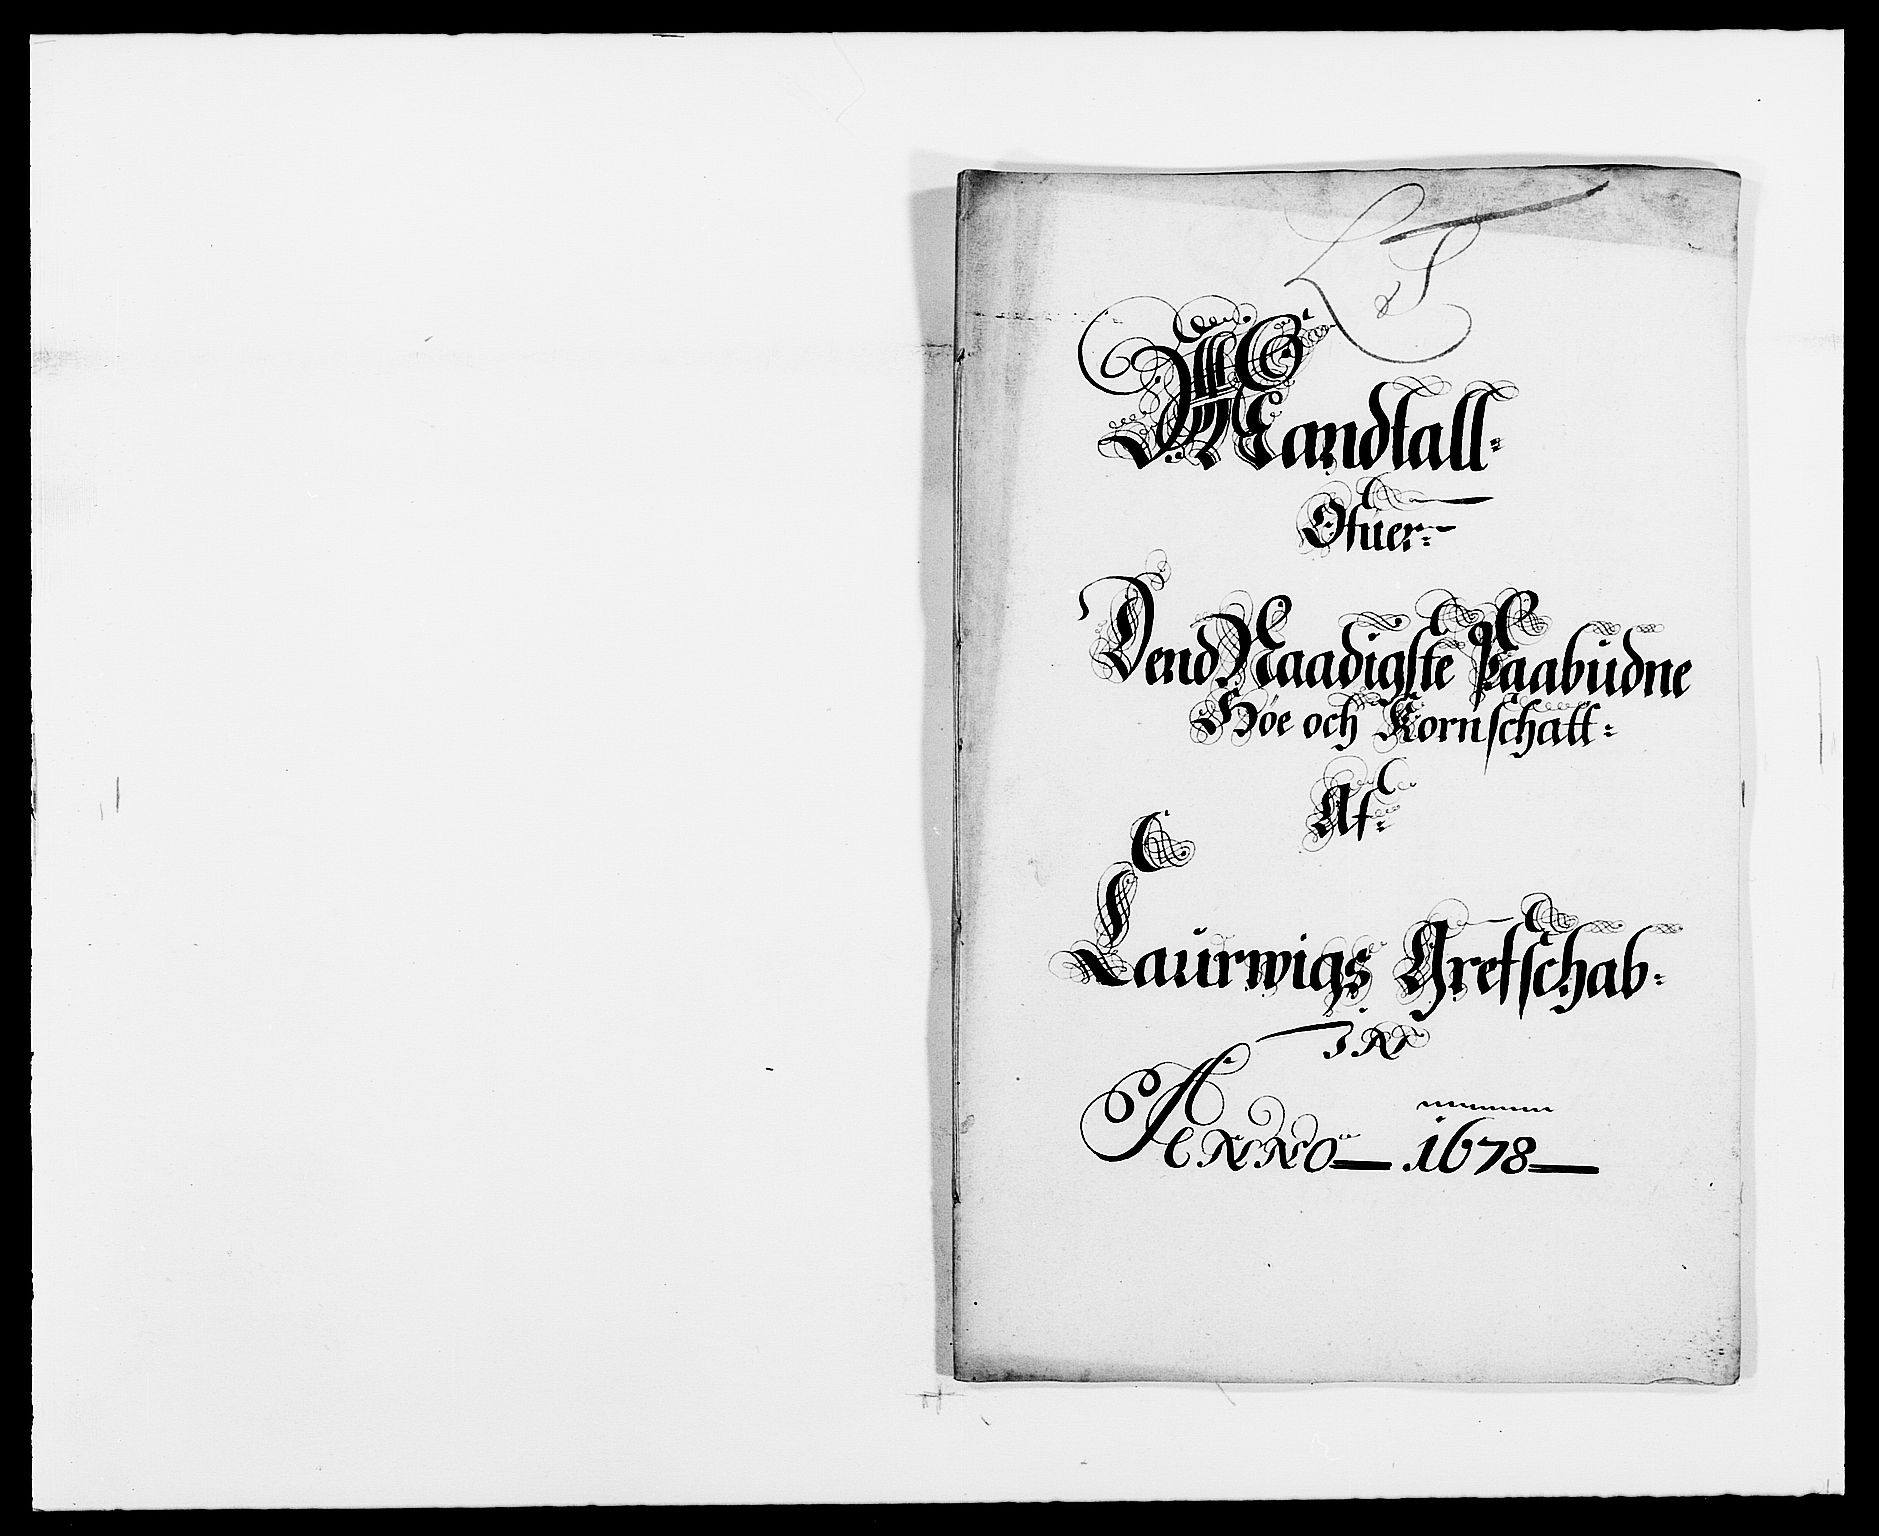 Mandtall
Ofuer
Dend Naadigste Paabudne
Höe och Kornschatt
Af
Laurwigs Grefschab
IN
ANNO 1678